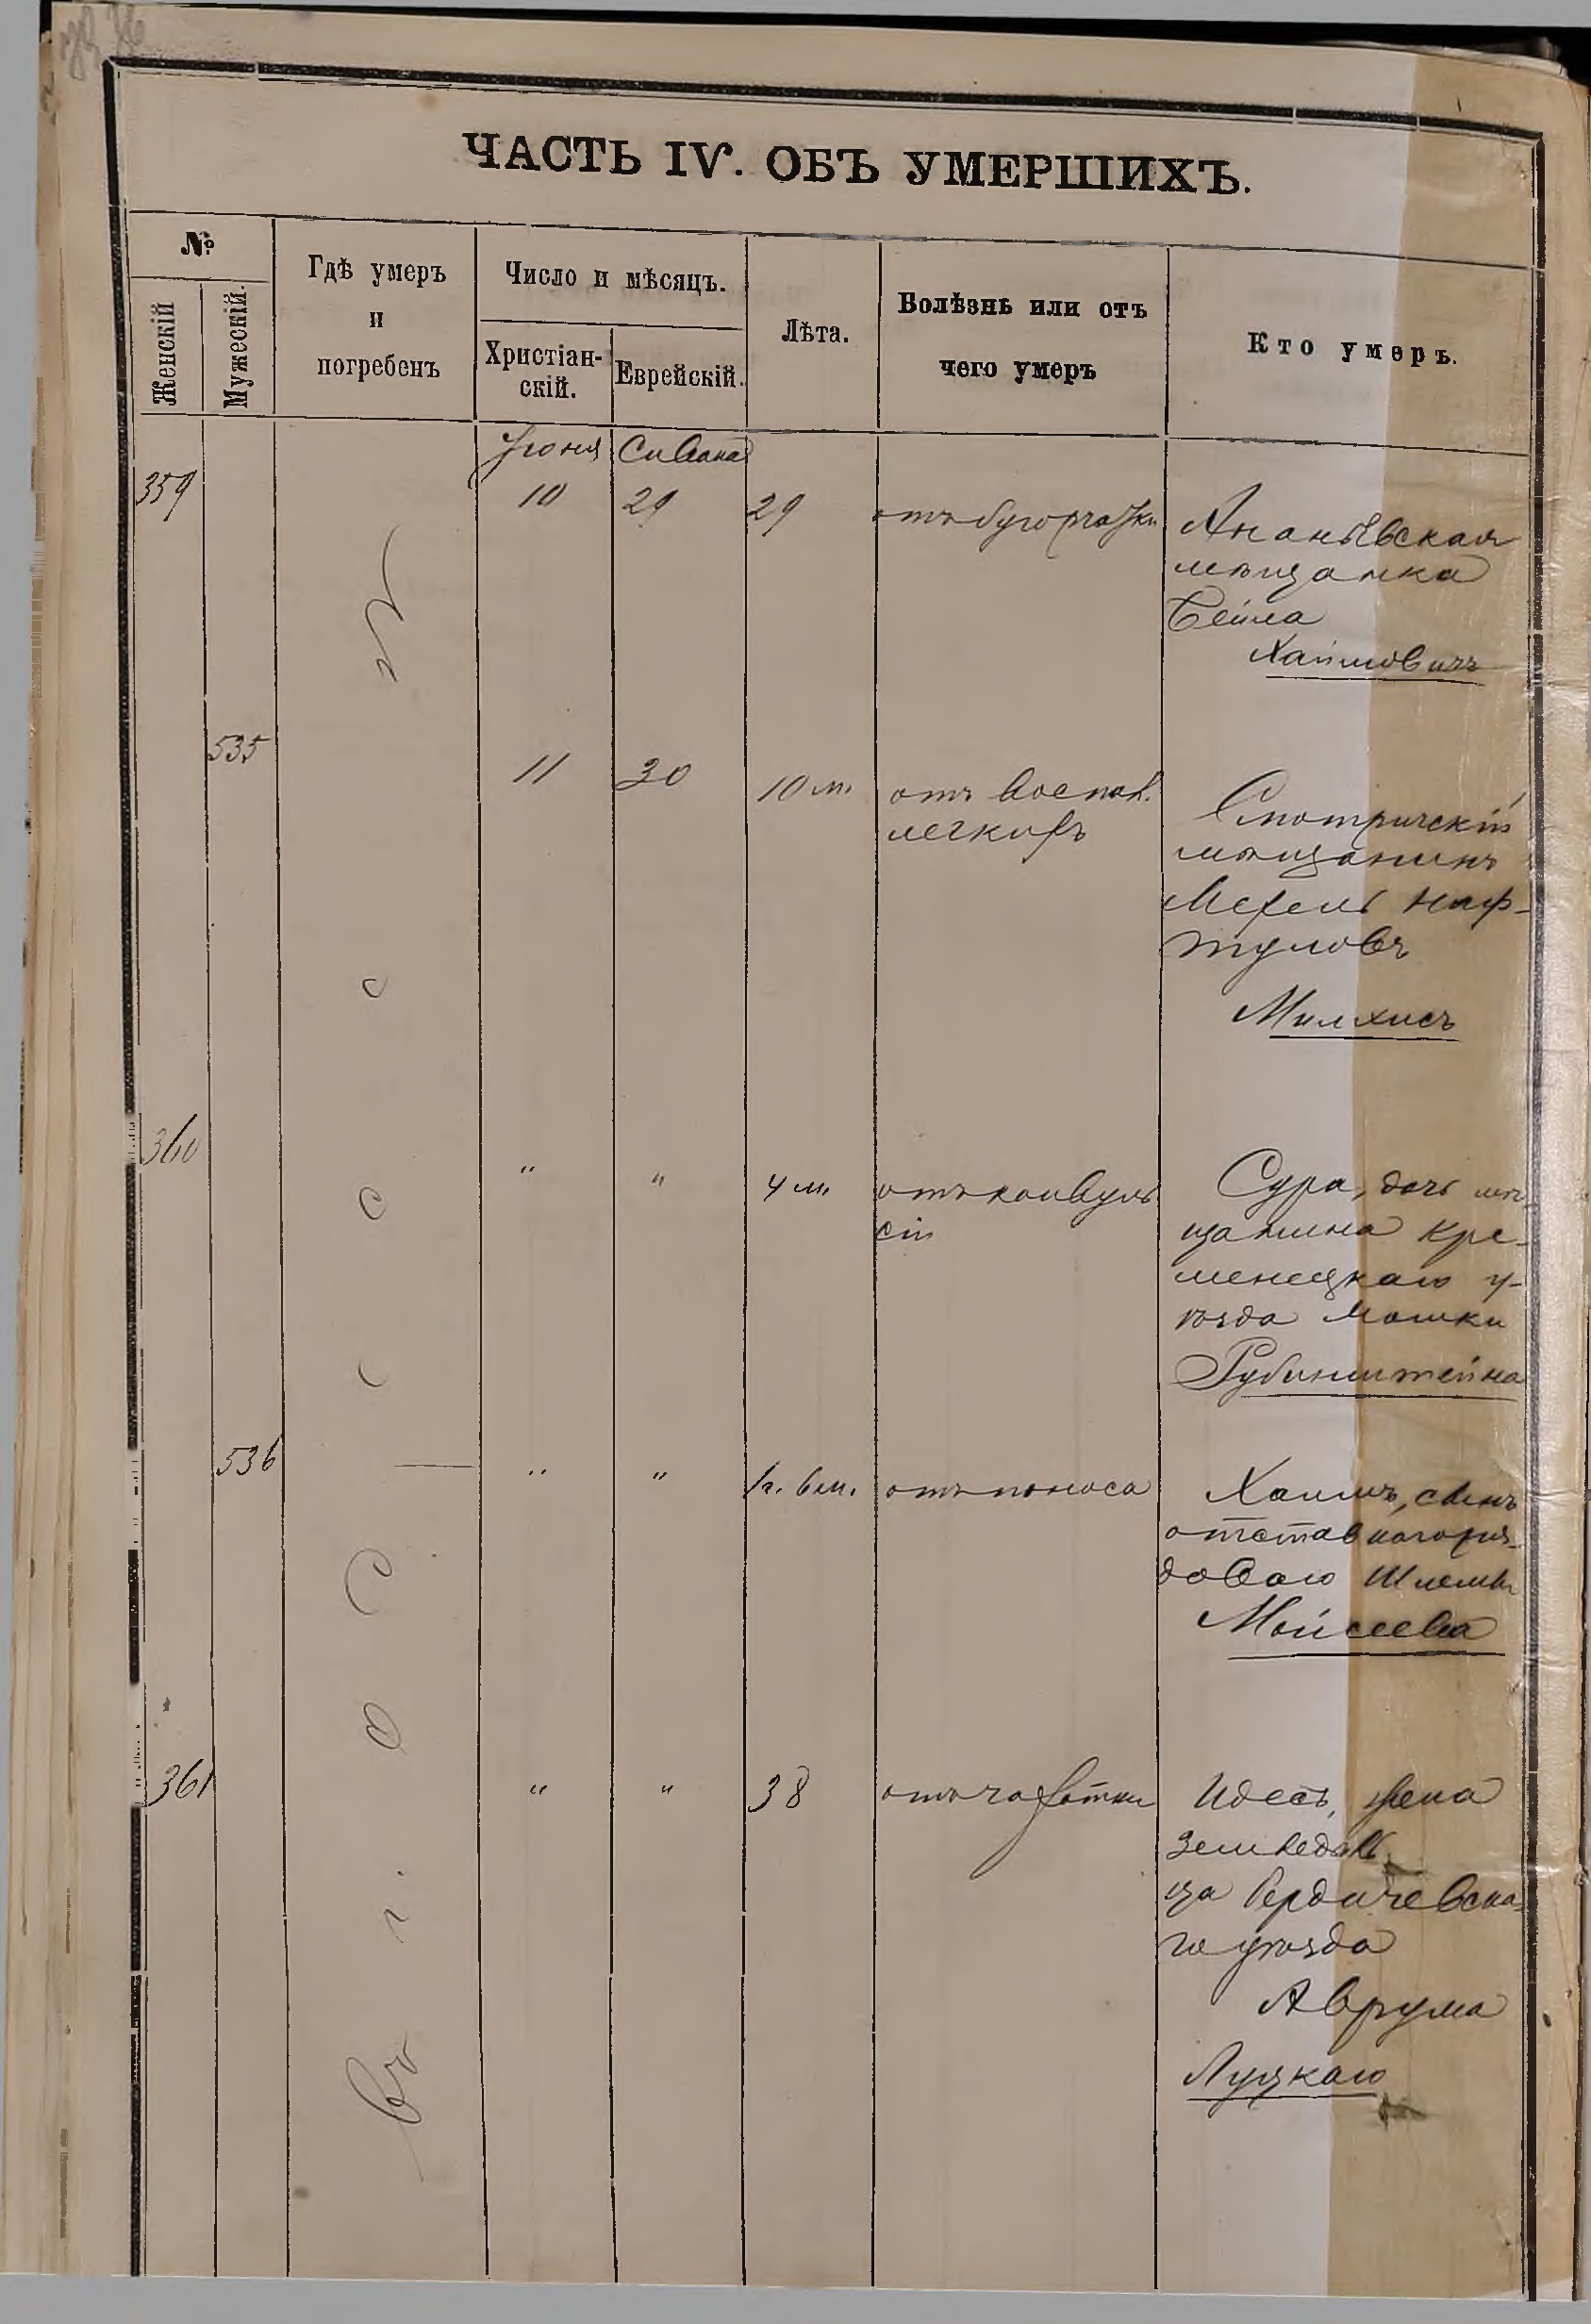 ЧАСТЬ IV. ОБЪ УМЕРШИХЪ.
№
Женскій
Мужескій.
Гдѣ умеръ
и
погребенъ
Число и мѣсяцъ.
Христіан-
скій.
Еврейскій.
Лѣта.
Болѣзнь или отъ
чего умеръ
Кто умеръ.
Іюня Сивана
359 10 29 29 отъ бугорчатки Ананьевская
мѣщанка
Бейла
Хаимовичъ
535 11 30 10 м. отъ воспал. Смотричскій
легкихъ мѣщанинъ
Мехель Наф-
туловъ
Милхисъ
360 " " 4 м. отъ конвуль Сура, дочь мѣ-
сіи щанина Кре-
менецкаго у-
ѣзда Мошки
Рубинштейна
536 " " 1 г. 6 м. отъ поноса Хаимъ, сынъ
отставного ря-
доваго Шлемы
Мойсеева
361 " " 38 отъ чахотки Идесъ, жена
земледѣль
ца Бердичевска-
го уѣзда
Аврума
Луцкаго
Въ г. Одессѣ